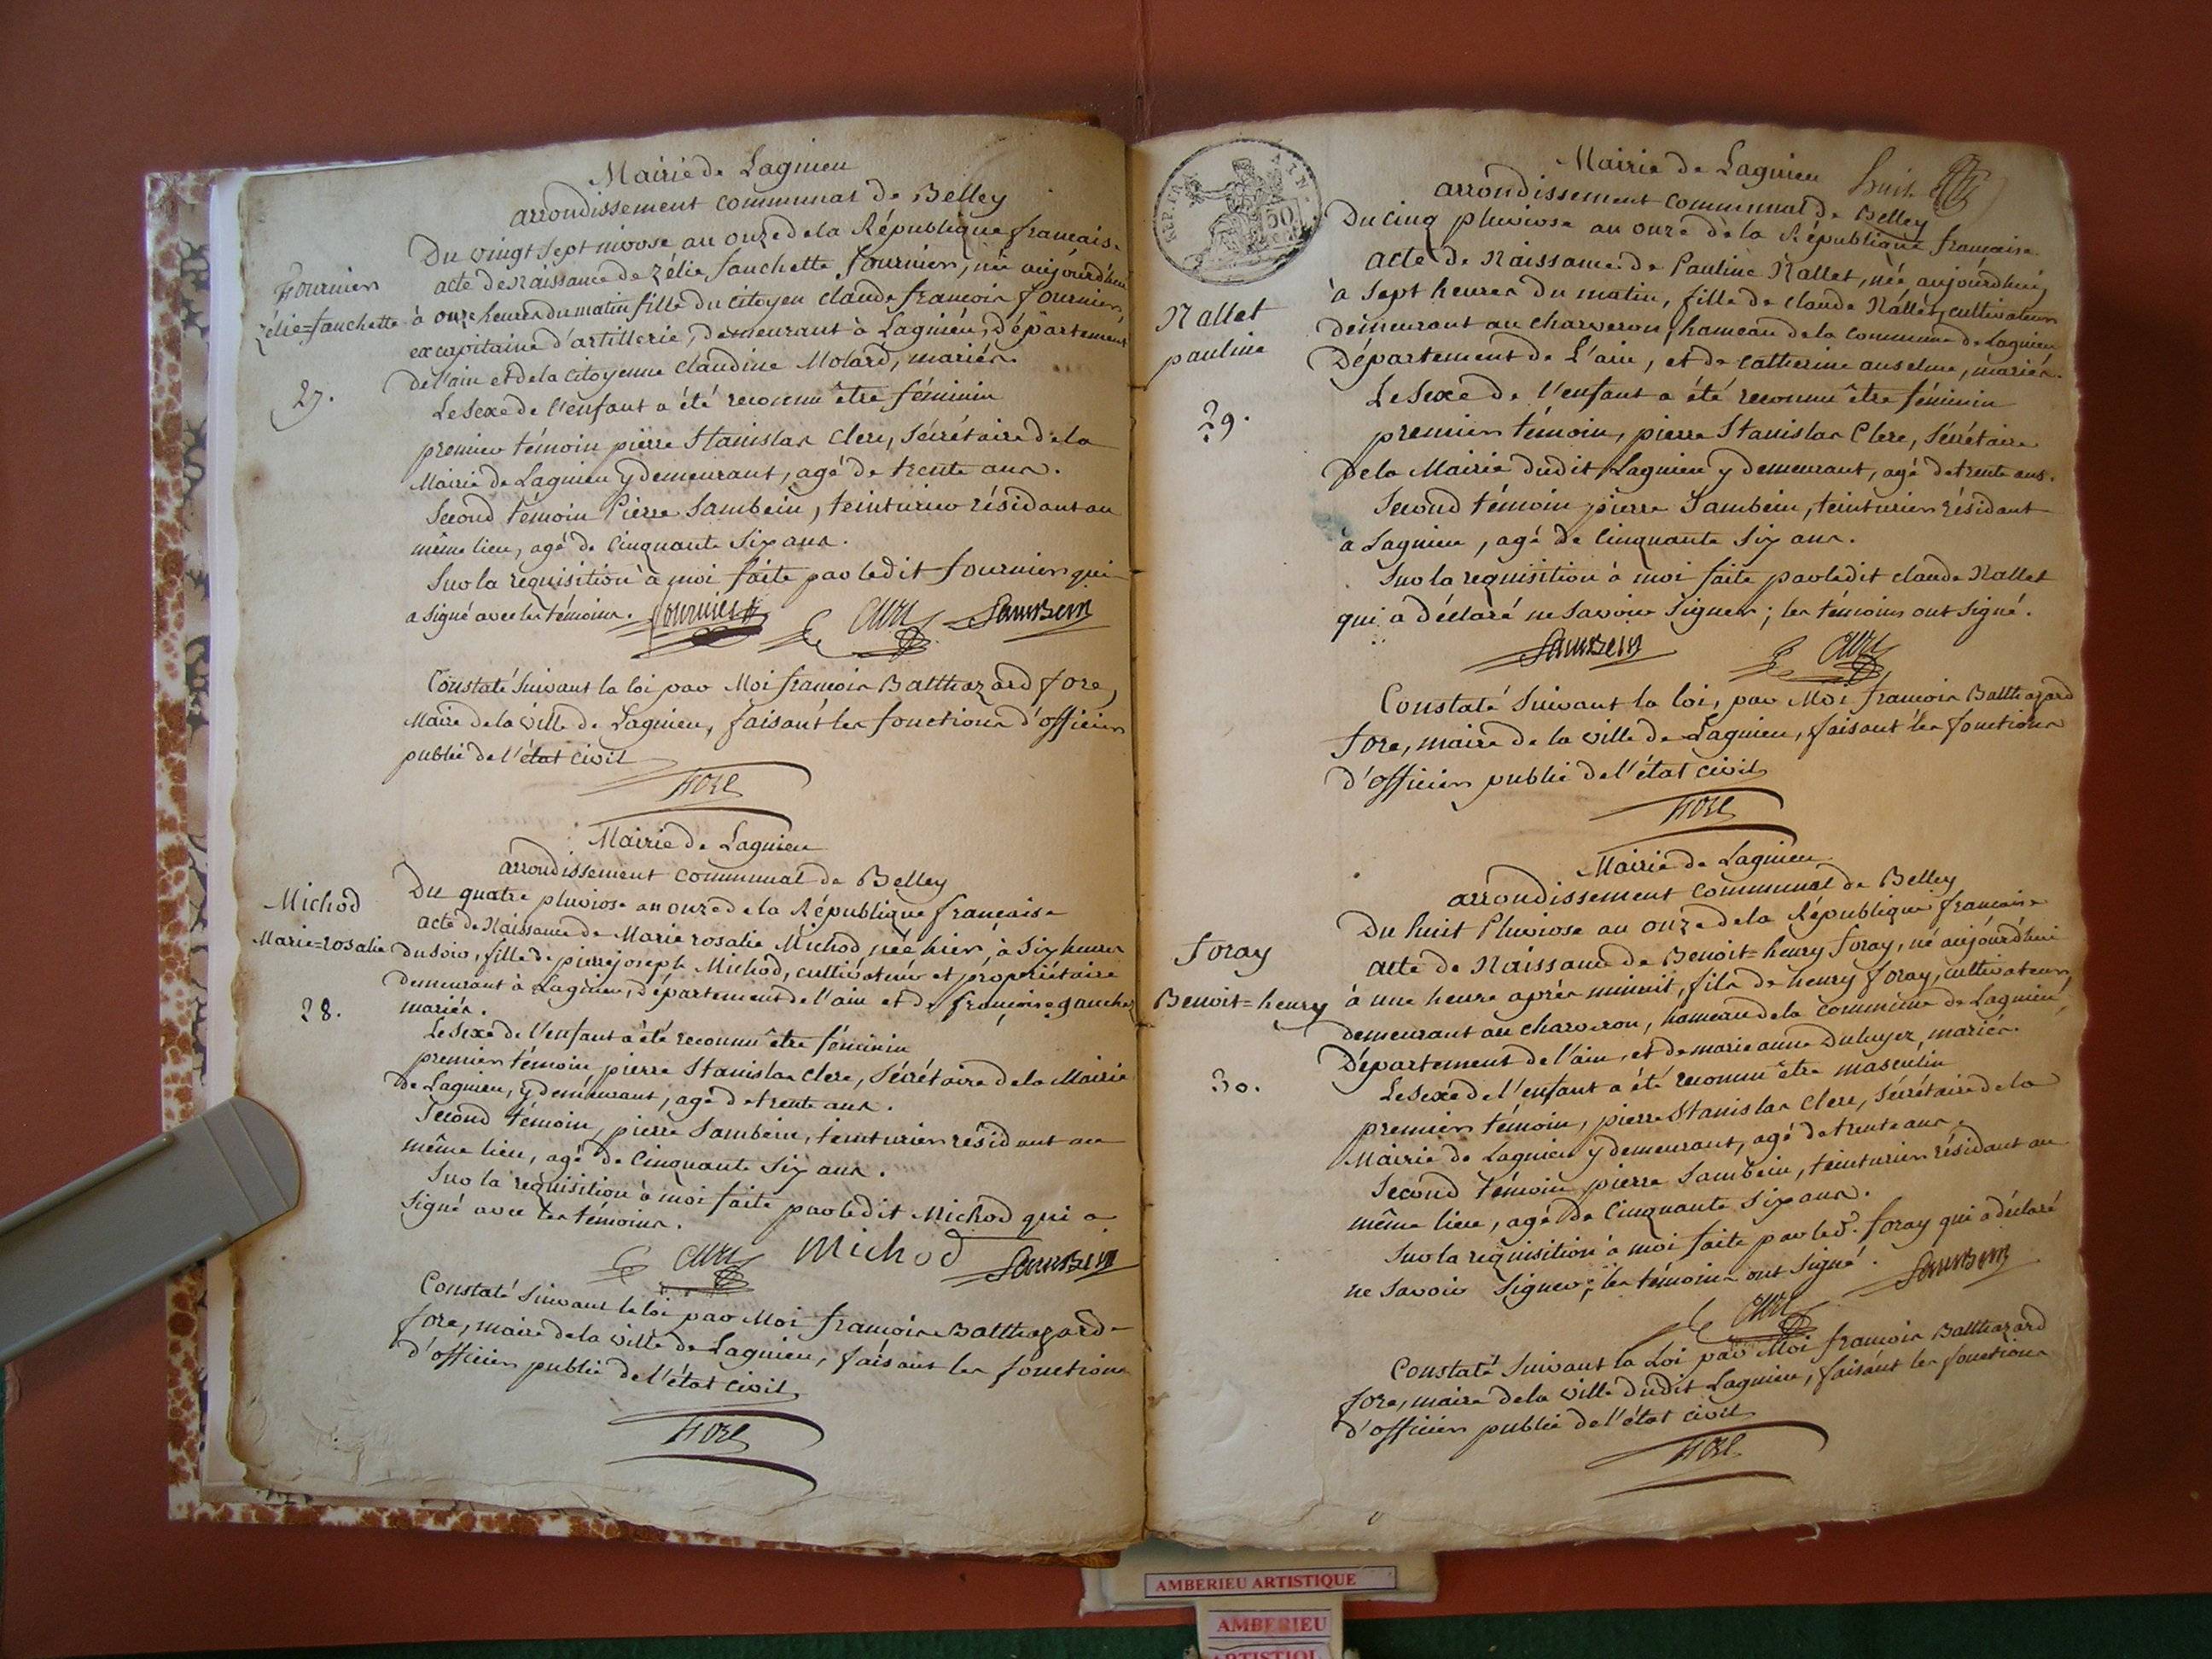 Mairie de Lagnieu
arrondissement communal de Belley
Du vingt sept nivose an onze de la République française
Fournier
zélie=fanchette
27.
acte de naissance de zélie fanchette fournier, née aujourd'hui
à onze heures du matin fille du citoyen claude françois fournier,
excapitaine d'artillerie, demeurant à Lagnieu, département
de l'ain et de la citoyenne claudine Molard, mariés.
Le sexe de l'enfant a été reconnu être féminin
premier témoin pierre Stanislas Clerc, Sécrétaire de la
Mairie de Lagnieu y demeurant, agé de trente ans.
Second témoin Pierre Sambein, teinturier résidant au
même lieu, agé de Cinquante Six ans.
Sur la requisition à moi faite par ledit fournier qui
a signé avec les témoins. fournier Clerc Sambein
Constaté Suivant la loi par Moi françois Balthazard fore,
Maire de la ville de Lagnieu, faisant les fonctions d'officier
public de l'état civil
fore
Mairie de Lagnieu
arrondissement communal de Belley
Du quatre pluviose an onze de la République française
Michod
Marie=rosalie
28.
acte de Naissance de Marie rosalie Michod, née hier, à Six heures
du Soir, fille de pierre joseph Michod, cultivateur et propriétaire
demeurant à Lagnieu, département de l'ain et de françoise gaucher
mariés.
Le Sexe de l'enfant a été reconnu être féminin
premier témoin pierre Stanislas Clerc, Sécrétaire de la Mairie
de Lagnieu, y demeurant, agé de trente ans.
Second témoin pierre Sambein, teinturier résidant au
même lieu, agé de Cinquante Six ans.
Sur la requisition à moi faite par ledit Michod qui a
Signé avec les témoins.
Clerc Michod Sambein
Constaté Suivant la loi par Moi françois Balthazard
fore, maire de la ville de Lagnieu, faisant les fonctions
d'officier public de l'état civil
fore
50
Mairie de Lagnieu huit
arrondissement communal de Belley
Du cinq pluviose an onze de la République française
Nallet
pauline
29.
acte de Naissance de Pauline Nallet, née aujourd'hui
à Sept heures du matin, fille de Claude Nallet, cultivateur
demeurant au charveron, hameau de la commune de Lagnieu
Département de L'ain, et de Catherine anselme, mariés.
Le Sexe de l'enfant a été reconnu être féminin
premier témoin, pierre Stanislas Clerc, Sécrétaire
de la Mairie dudit Lagnieu y demeurant, agé de trente ans.
Second témoin pierre Sambein, teinturier résidant
à Lagnieu, agé de Cinquante Six ans.
Sur la requisition à moi faite par ledit claude Nallet
qui a déclaré ne Savoir Signer ; les témoins ont Signé.
Sambein Clerc
Constaté Suivant la loi, par Moi françois Balthazard
fore, maire de la ville de Lagnieu, faisant les fonctions
d'officier public de l'état civil
fore
Mairie de Lagnieu
arrondissement communal de Belley
Du huit Pluviose an onze de la République française
foray
Benoit=henry
30.
acte de Naissance de Benoit=henry foray, né aujourd'hui
à une heure après minuit, fils de henry foray, cultivateur
demeurant au charveron, hameau de la commune de Lagnieu,
Département de l'ain, et de marie anne Duluyer, mariés.
Le Sexe de l'enfant a été reconnu être masculin
premier témoin, pierre Stanislas Clerc, Sécrétaire de la
Mairie de Lagnieu y demeurant, agé de trente ans
Second témoin pierre Sambein, teinturier résidant au
même lieu, agé de Cinquante Six ans.
Sur la requisition à moi faite par led. foray qui a déclaré
ne Savoir Signer ; les témoins ont Signé. Sambein
Clerc
Constaté Suivant la Loi par Moi françois Balthazard
fore, maire de la ville dudit Lagnieu, faisant les fonctions
d'officier public de l'état civil
fore
AMBERIEU ARTISTIQUE
AMBERIEU
ARTISTIQU